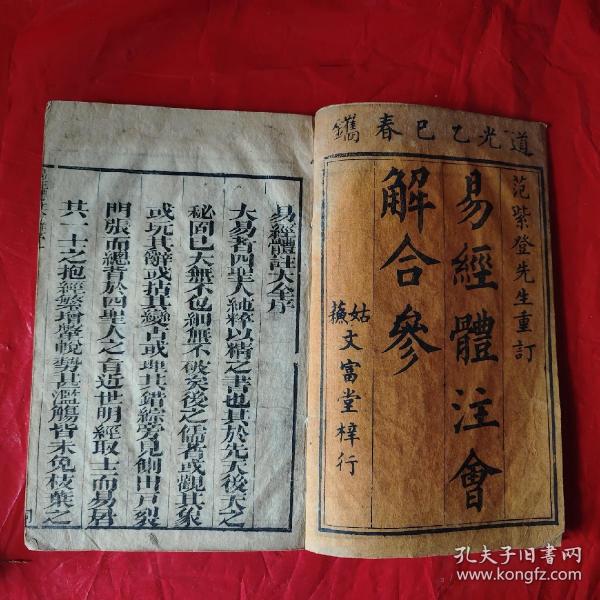 道光乙巳春鐫
范紫登先生重訂
易經體注會
解合參
姑蘇文富堂梓行
易經體註大全序
大易者四聖人純粹以精之書也其於先天後天之
秘固已大無不包細無不破矣後之儒者或觀其象
或玩其辭或拈其變占或理其錯綜旁見側出戸裂
門張而總者於四聖人之旨近世明經取士而易居
其一士之抱經繁增鞶帨勢其濫觴皆未免枝葉之
孔夫子旧书网
www.kongfz.com